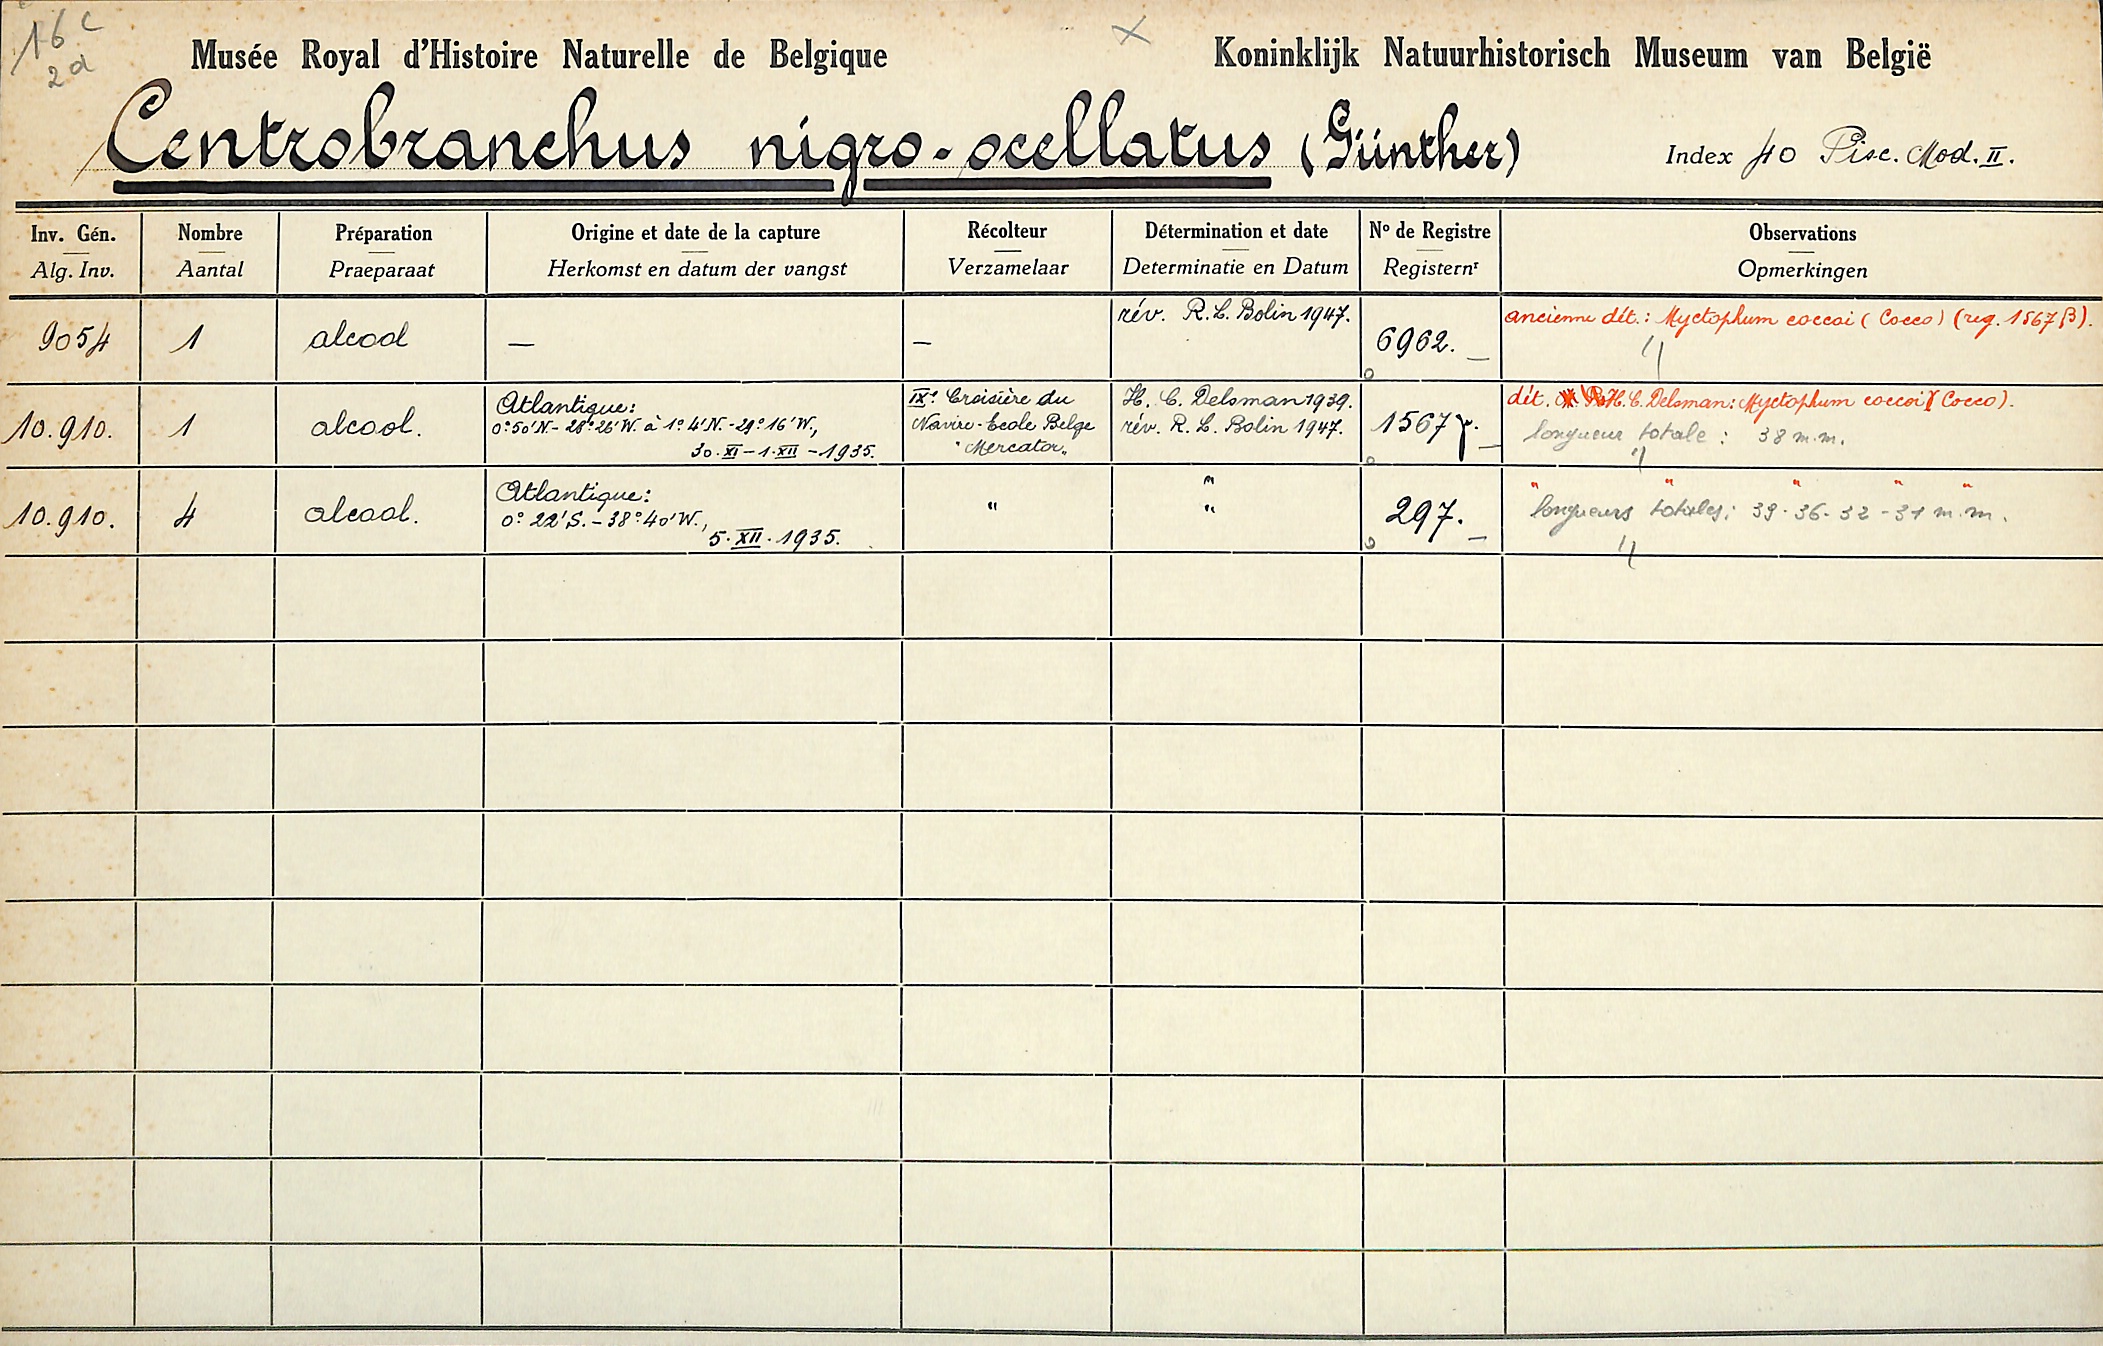 16 c
2d
Musée Royal d'Histoire Naturelle de Belgique
Koninklijk Natuurhistorisch Museum van België
Centrobranchus nigro-ocellatus (Günther)
Index 40 Pisc. Mod. II.
Inv. Gén. Nombre Préparation Origine et date de la capture Récolteur Détermination et date Nº de Registre Observations
Alg. Inv. Aantal Praeparaat Herkomst en datum der vangst Verzamelaar Determinatie en Datum Registernr Opmerkingen
9054 1 alcool — — rév. R. L. Bolin 1947. 6962. — ancienne dét.: Myctophum coccoi (Cocco) (reg. 1567 β).
10.910. 1 alcool.
Atlantique:
0° 50' N - 28° 26' W. à 1° 4' N. - 29° 16' W.,
30. XI - 1. XII - 1935.
IXe Croisière du
Navire-Ecole Belge
"Mercator"
H. C. Delsman 1939.
rév. R. L. Bolin 1947.
1567 γ. —
dét. H. C. Delsman: Myctophum coccoi (Cocco).
longueur totale: 38 m.m.
10.910. 4 alcool.
Atlantique:
0° 22' S. - 38° 40' W.,
5. XII. 1935.
"
"
"
297. —
" " " " "
longueurs totales: 39-36-32-31 m.m.